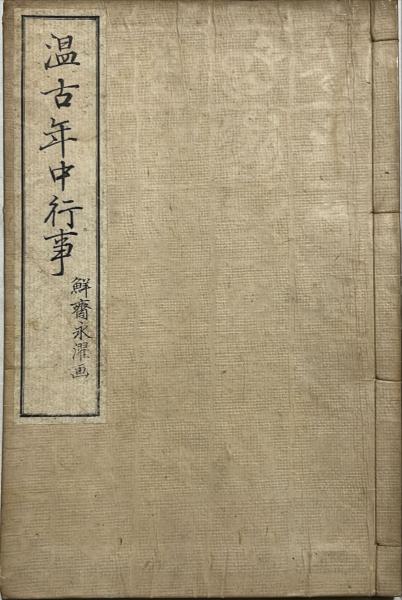 温古年中行事
鮮齋永濯画